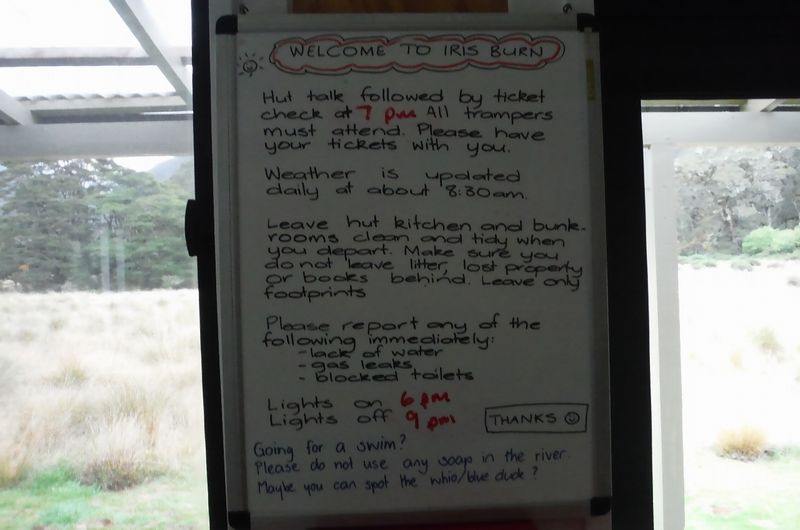 WELCOME TO IRIS BURN
Hut talk followed by ticket
check at 7 pm All trampers
must attend. Please have
your tickets with you.
Weather is updated
daily at about 8:30am.
Leave hut kitchen and bunk-
rooms clean and tidy when
you depart. Make sure you
do not leave litter, lost property
or books behind. Leave only
footprints
Please report any of the
following immediately:
- lack of water
- gas leaks
- blocked toilets
Lights on 6 pm
Lights off 9 pm
THANKS ☺
Going for a swim?
Please do not use any soap in the river.
Maybe you can spot the whio/blue duck?